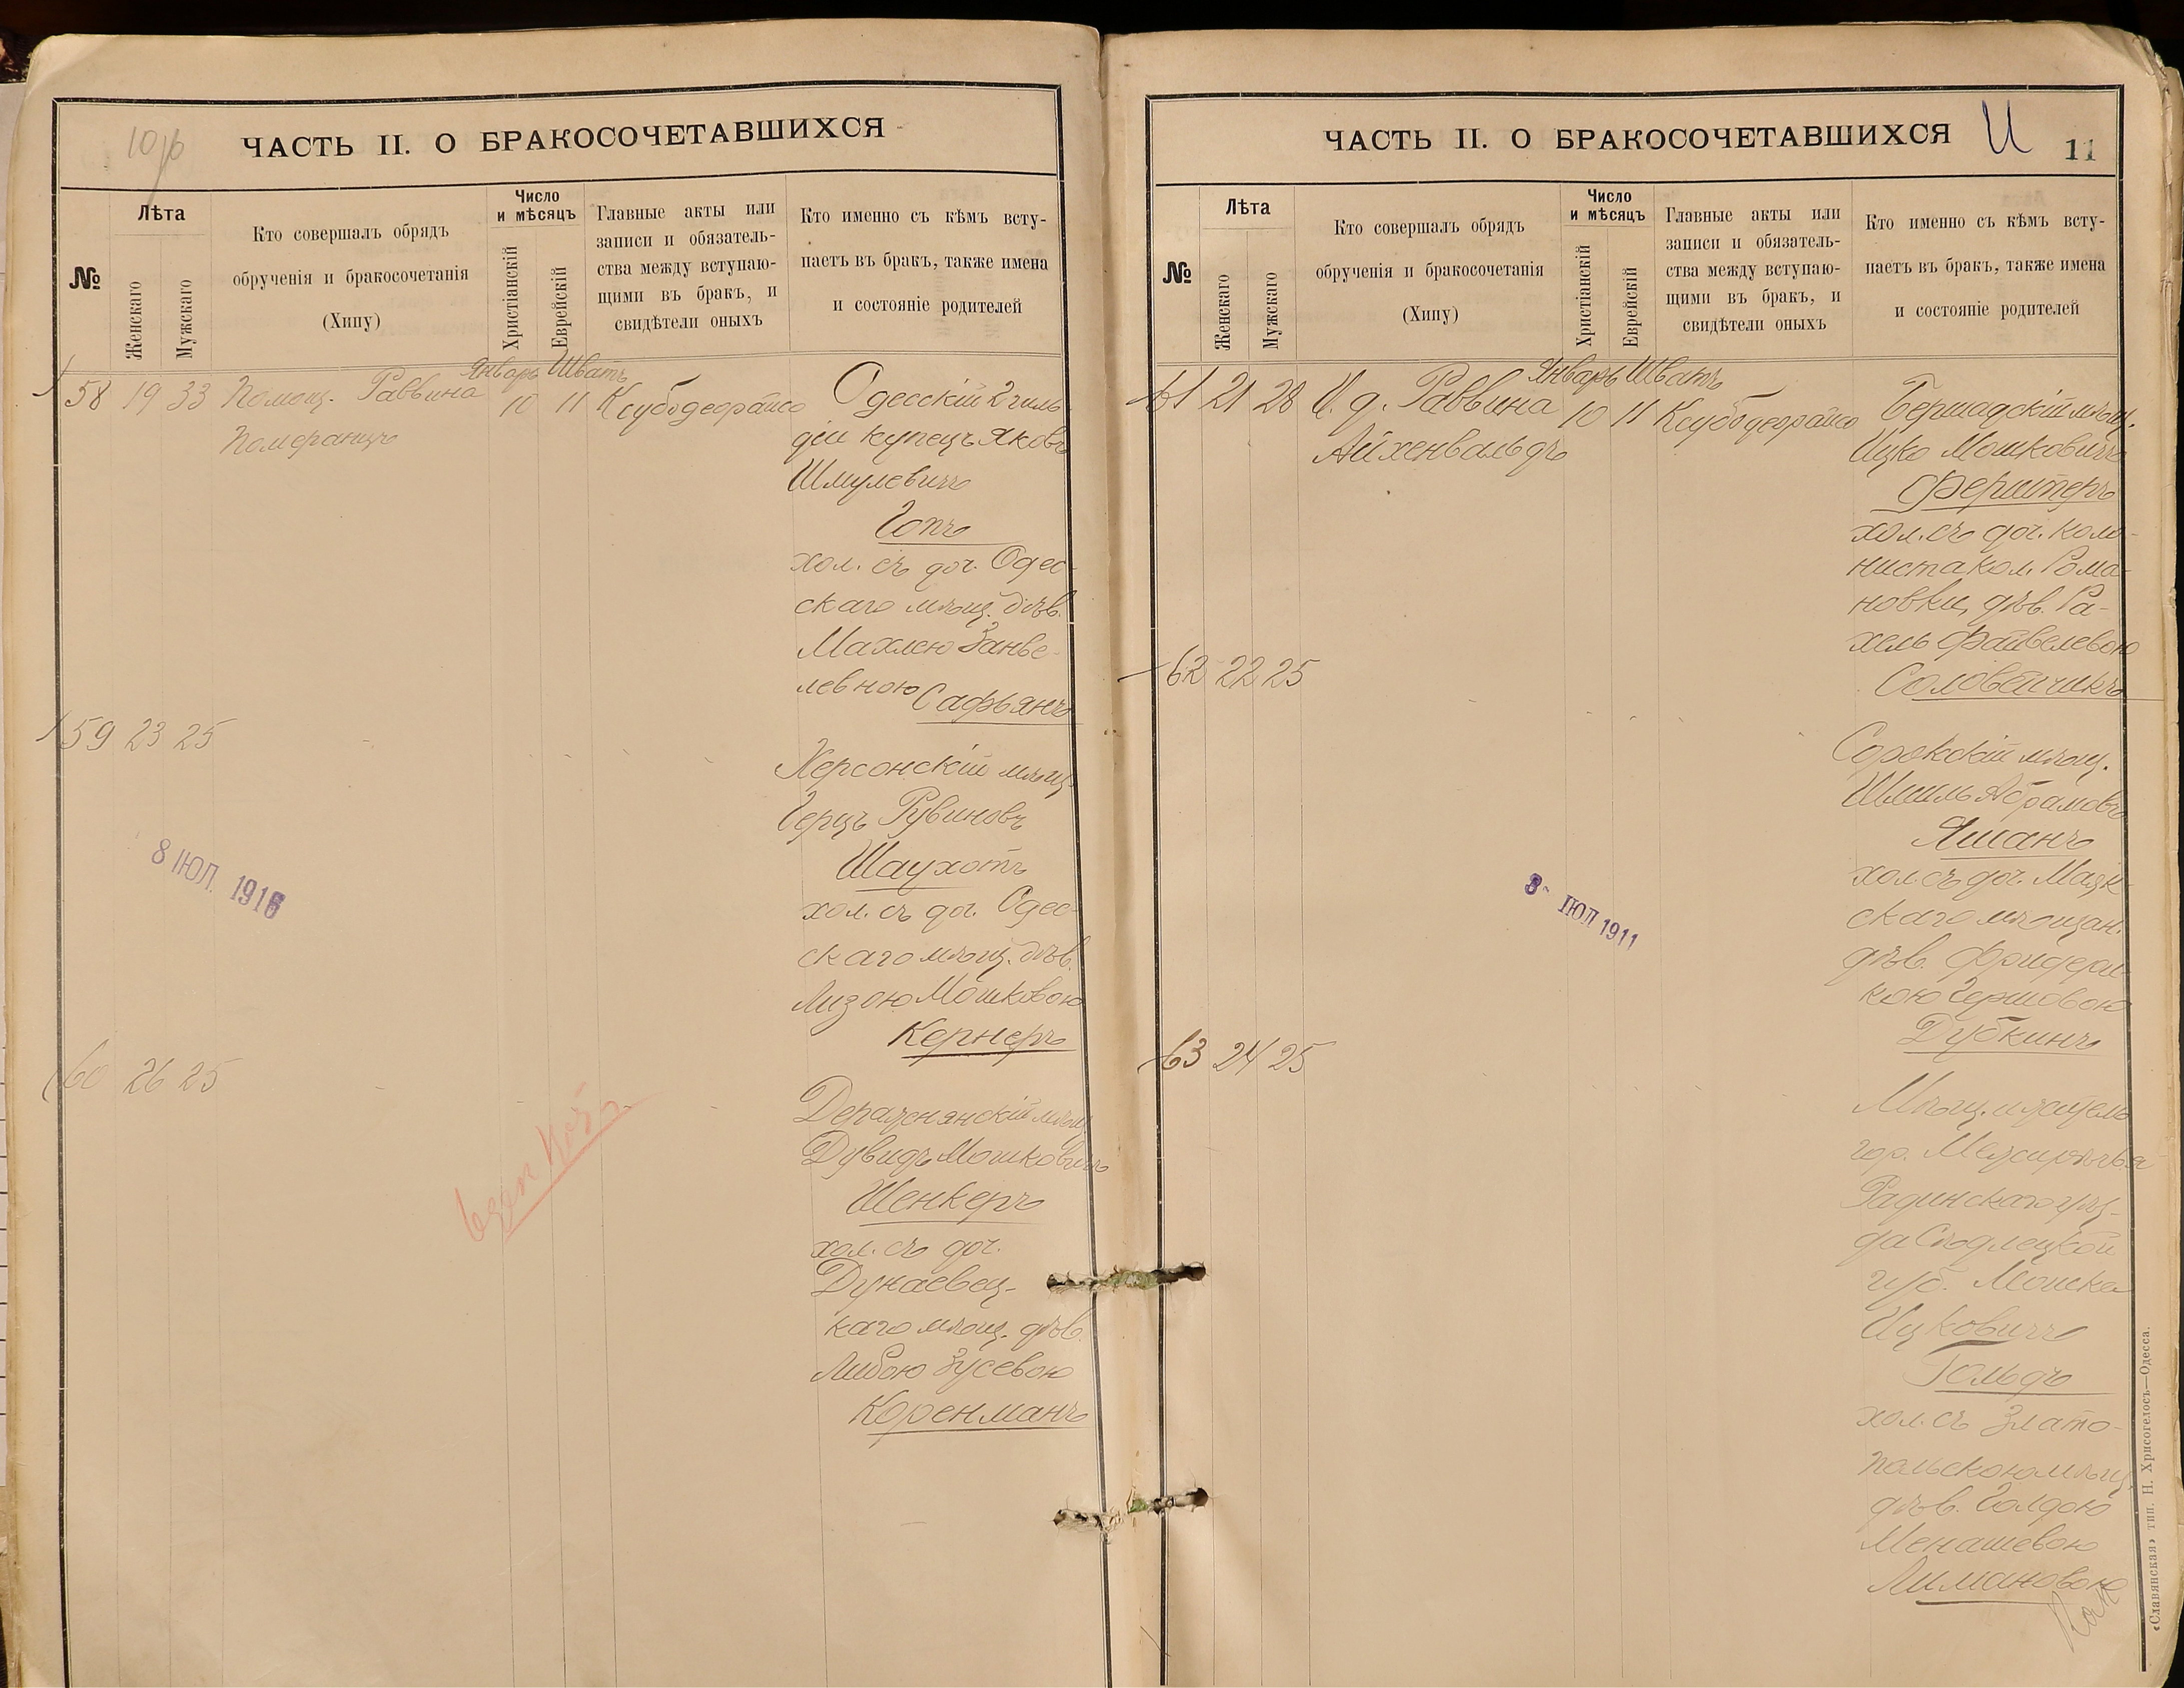 10 об
ЧАСТЬ II. О БРАКОСОЧЕТАВШИХСЯ
№
Лѣта
Женскаго
Мужскаго
Кто совершалъ обрядъ
обрученія и бракосочетанія
(Хипу)
Число
и мѣсяцъ
Христіанскій
Еврейскій
Главные акты или
записи и обязатель-
ства между вступаю-
щими въ бракъ, и
свидѣтели оныхъ
Кто именно съ кѣмъ всту-
паетъ въ бракъ, также имена
и состояніе родителей
Январь Шватъ
58 19 33 Помощ. Раввина 10 11 Ксубодеорайсо
Померанцъ
Одесскій 2 гиль-
діи купецъ Яковъ
Шмулевичъ
Гопъ
хол. съ доч. Одес-
скаго мѣщ. дѣв.
Махлею Занве-
левною Сафьянъ
59 23 25
Херсонскій мѣщ.
Герцъ Рувиновъ
Шаухотъ
хол. съ доч. Одес-
скаго мѣщ. дѣв.
Лизою Мошковою
Кернеръ
8 ІЮЛ. 1916
60 26 25
Деражнянскій мѣщ.
Дувидъ Мошковичъ
Шенкеръ
хол. съ доч.
Дунаевец-
каго мѣщ. дѣв.
Либою Зусевою
Коренманъ
ЧАСТЬ II. О БРАКОСОЧЕТАВШИХСЯ
11
№
Лѣта
Женскаго
Мужскаго
Кто совершалъ обрядъ
обрученія и бракосочетанія
(Хипу)
Число
и мѣсяцъ
Христіанскій
Еврейскій
Главные акты или
записи и обязатель-
ства между вступаю-
щими въ бракъ, и
свидѣтели оныхъ
Кто именно съ кѣмъ всту-
паетъ въ бракъ, также имена
и состояніе родителей
Январь Шватъ
61 21 28 И. д. Раввина 10 11 Ксубодеорайсо
Айхенвальдъ
Бершадскій мѣщ.
Ицко Мошковичъ
Ферштеръ
хол. съ доч. коло-
ниста кол. Рома-
новки, дѣв. Ра-
хель Файвелевою
Соловейчикъ
62 22 25
Сорокскій мѣщ.
Шмиль Абрамовъ
Яшанъ
хол. съ доч. Маяк-
скаго мѣщан.
дѣв. Фридери-
кою Гершовою
Дубкинъ
8 ІЮЛ 1911
63 24 25
Мѣщ. и житель
гор. Межирѣчья
Радинскаго уѣз-
да Сѣдлецкой
губ. Мошка
Ицковичъ
Гольдъ
хол. съ Злато-
польскою мѣщ.
дѣв. Голдою
Менашевою
Лимановою
«Славянская» тип. Н. Хрисогелосъ—Одесса.